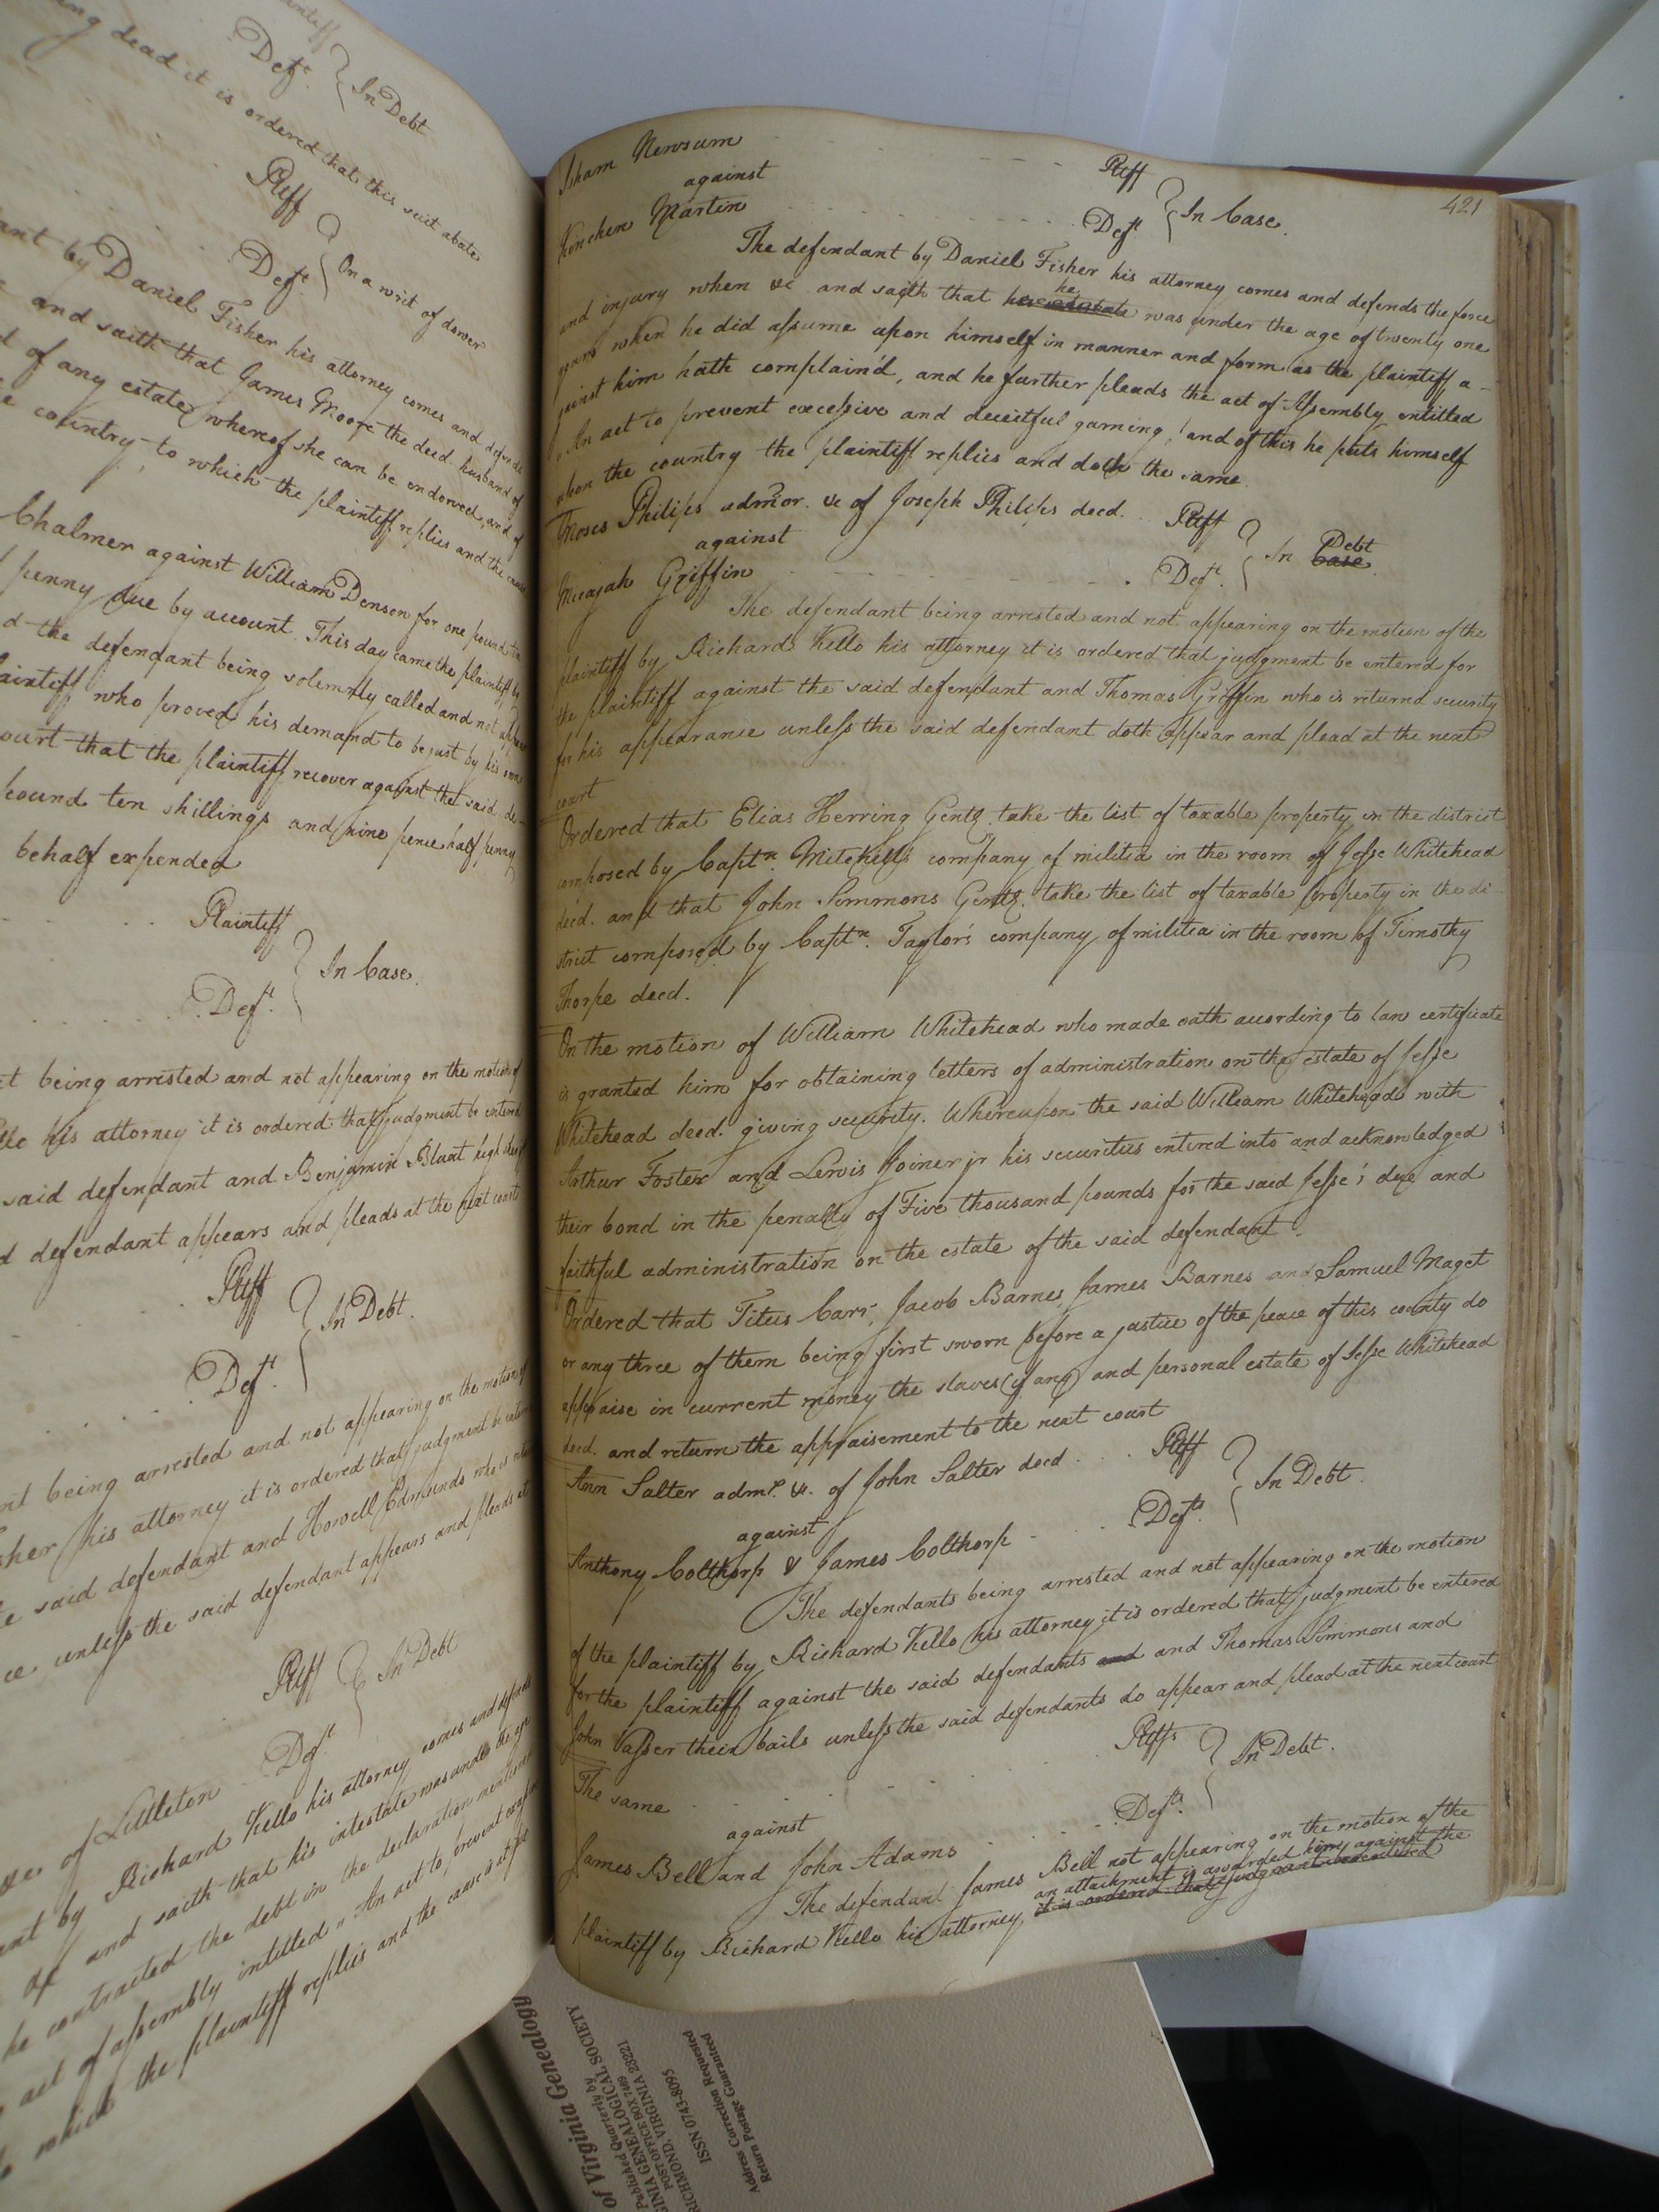 Deft.
In Debt
ing dead it is ordered that this suit abate
Pltff
Deft.
On a writ of dower
ant by Daniel Fisher his attorney comes and defends
and saith that James Moore the deed. husband of
d of any estate whereof she can be endowed, and of
e country, to which the plaintiff replies and the cause
Chalmer against William Denson for one pound ten
penny due by account. This day came the plaintiff by
d the defendant being solemnly called and not appear
aintiff who proved his demand to be just by his own
ourt that the plaintiff recover against the said de-
pound ten shillings and nine pence half penny
behalf expended
Plaintiff
Deft.
In Case.
t being arrested and not appearing on the motion of
llo his attorney it is ordered that judgment be entered
said defendant and Benjamin Blunt high sheriff
d defendant appears and pleads at the next court
Pltff
Deft.
In Debt.
nt being arrested and not appearing on the motion of
sher his attorney it is ordered that judgment be enter
e said defendant and Howell Edmunds who is ret
ce unless the said defendant appears and pleads at
Pltff
In Debt
of Littleton Deft
ant by Richard Kello his attorney comes and defends
&c and saith that his intestate was under the age
he contracted the debt in the declaration mentioned
act of assembly intitled "An act to prevent excessi
which the plaintiff replies and the cause is
421
Isham Newsum Pltff
against
In Case.
Kinchen Martin Deft.
The defendant by Daniel Fisher his attorney comes and defends the force
and injury when &c. and saith that he was under the age of twenty one
years when he did assume upon himself in manner and form as the plaintiff a-
gainst him hath complain'd, and he further pleads the act of Assembly intitled
"An act to prevent excessive and deceitful gaming," and of this he puts himself
upon the country the plaintiff replies and doth the same.
Moses Philips admor. &c of Joseph Philips deed. Pltff
against
In Debt
Case
Micajah Griffin Deft.
The defendant being arrested and not appearing on the motion of the
plaintiff by Richard Kello his attorney it is ordered that judgment be entered for
the plaintiff against the said defendant and Thomas Griffin who is returnd security
for his appearance unless the said defendant doth appear and plead at the next
court
Ordered that Elias Herring Gentl. take the list of taxable property in the district
composed by Captn. Mitchell's company of militia in the room of Jesse Whitehead
deed. and that John Simmons Gentl. take the list of taxable property in the di-
strict composed by Captn. Taylor's company of militia in the room of Timothy
Thorpe deed.
On the motion of William Whitehead who made oath according to law certificate
is granted him for obtaining letters of administration on the estate of Jesse
Whitehead deed. giving security. Whereupon the said William Whitehead with
Arthur Foster and Lewis Joiner jr his securities entered into and acknowledged
their bond in the penalty of Five thousand pounds for the said Jesse's due and
faithful administration on the estate of the said defendant.
Ordered that Titus Carr, Jacob Barnes, James Barnes and Samuel Maget
or any three of them being first sworn before a justice of the peace of this county do
appraise in current money the slaves (if any) and personal estate of Jesse Whitehead
deed. and return the appraisement to the next court
Ann Salter admr. &c. of John Salter deed. Pltff
against
In Debt.
Anthony Colthorp & James Colthorp Defts.
The defendants being arrested and not appearing on the motion
of the plaintiff by Richard Kello his attorney it is ordered that judgment be entered
for the plaintiff against the said defendants and and Thomas Simmons and
John Vasser their bails unless the said defendants do appear and plead at the next court
The same Pltffs
against
In Debt.
James Bell and John Adams Defts.
The defendant James Bell not appearing on the motion of the
an attachment is awarded him against the
plaintiff by Richard Kello his attorney, it is ordered that judgment be entered
of Virginia Genealogy
Published Quarterly by
GINIA GENEALOGICAL SOCIETY
POST OFFICE BOX 7469
RICHMOND, VIRGINIA 23221
ISSN 0743-8095
Address Correction Requested
Return Postage Guaranteed